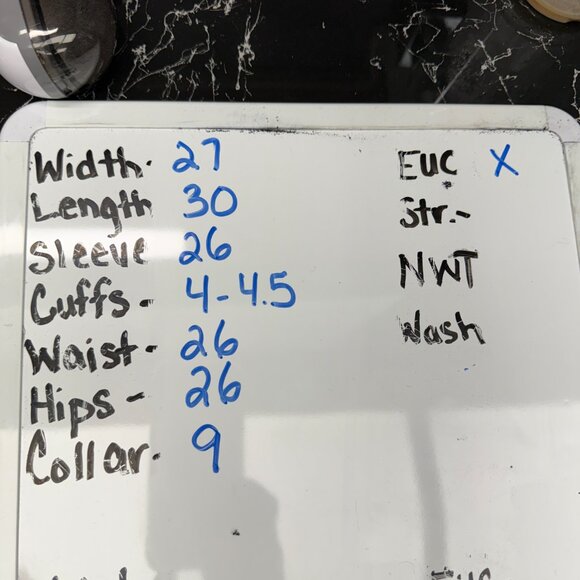 Width- 27
Length 30
Sleeve 26
Cuffs- 4-4.5
Waist- 26
Hips- 26
Collar- 9
EUC X
Str.-
NWT
Wash